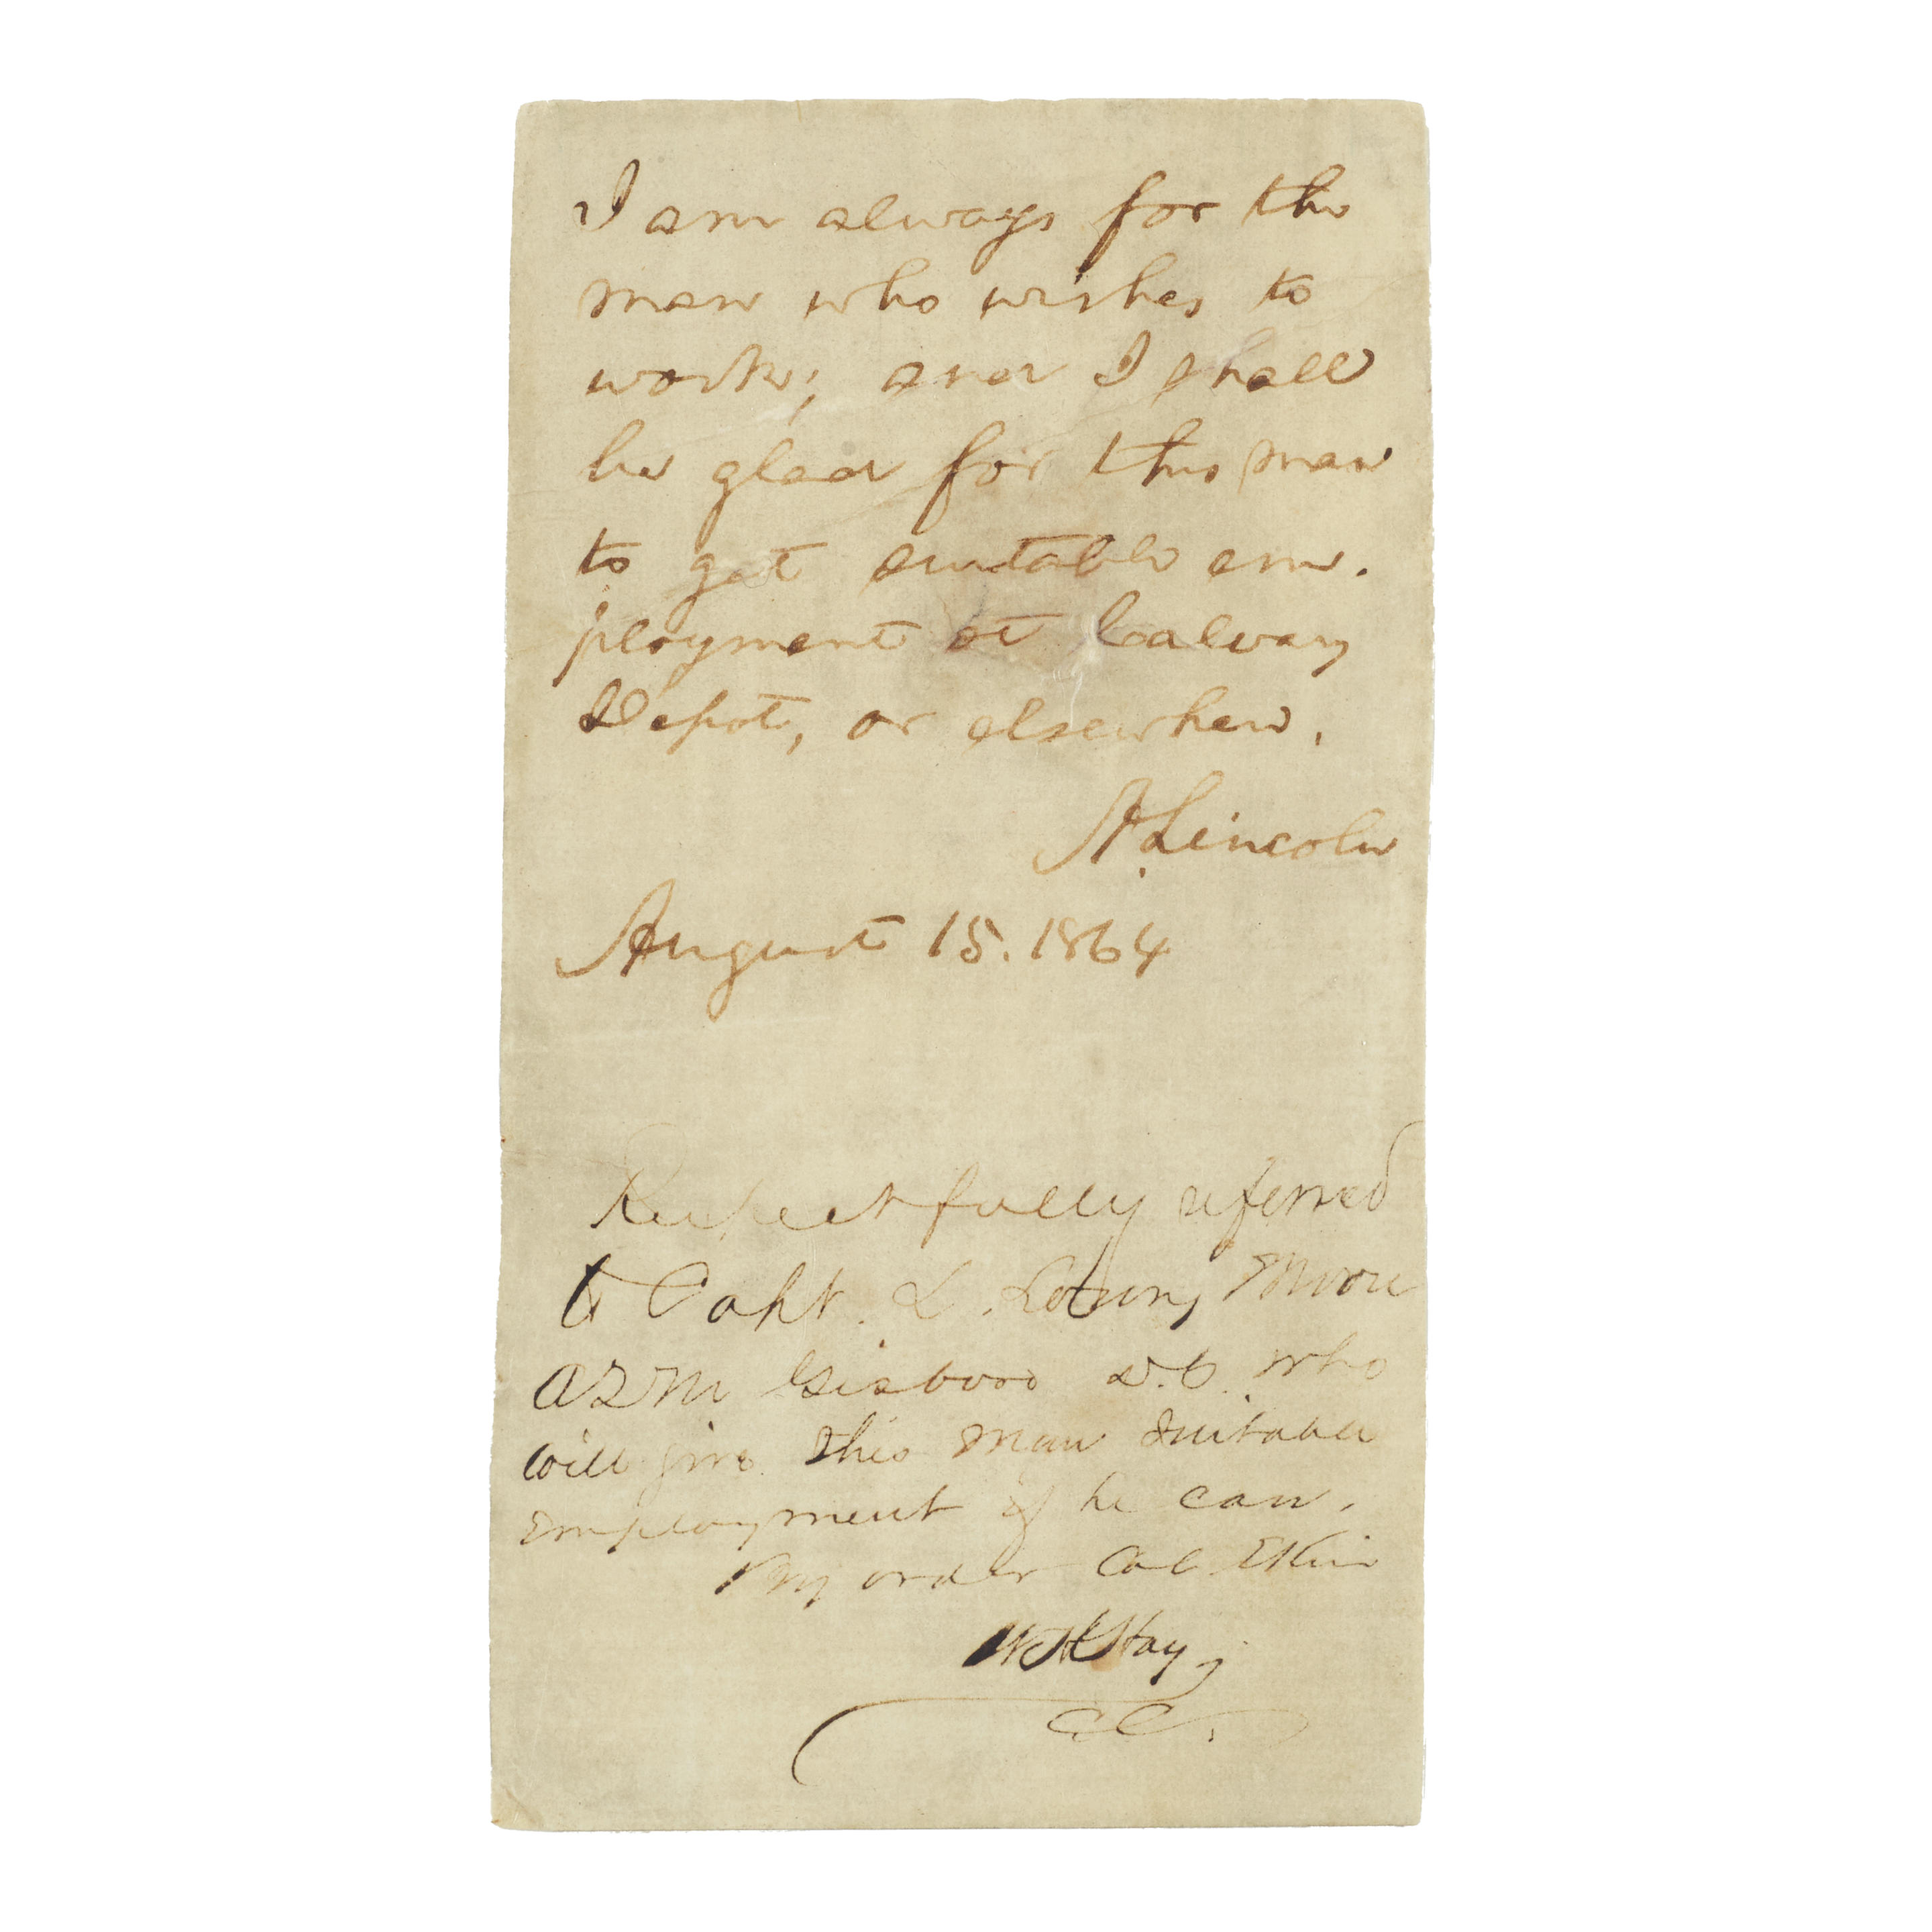 I am always for the
man who wishes to
work; and I shall
be glad for this man
to get suitable em-
ployment at Calvary
Depot, or elsewhere.
A. Lincoln
August 15. 1864
Respectfully referred
to Capt. L. Lowry Moore
AQM Giesboro D.C. who
will give this man suitable
employment if he can.
By order Col Ekin
CC.